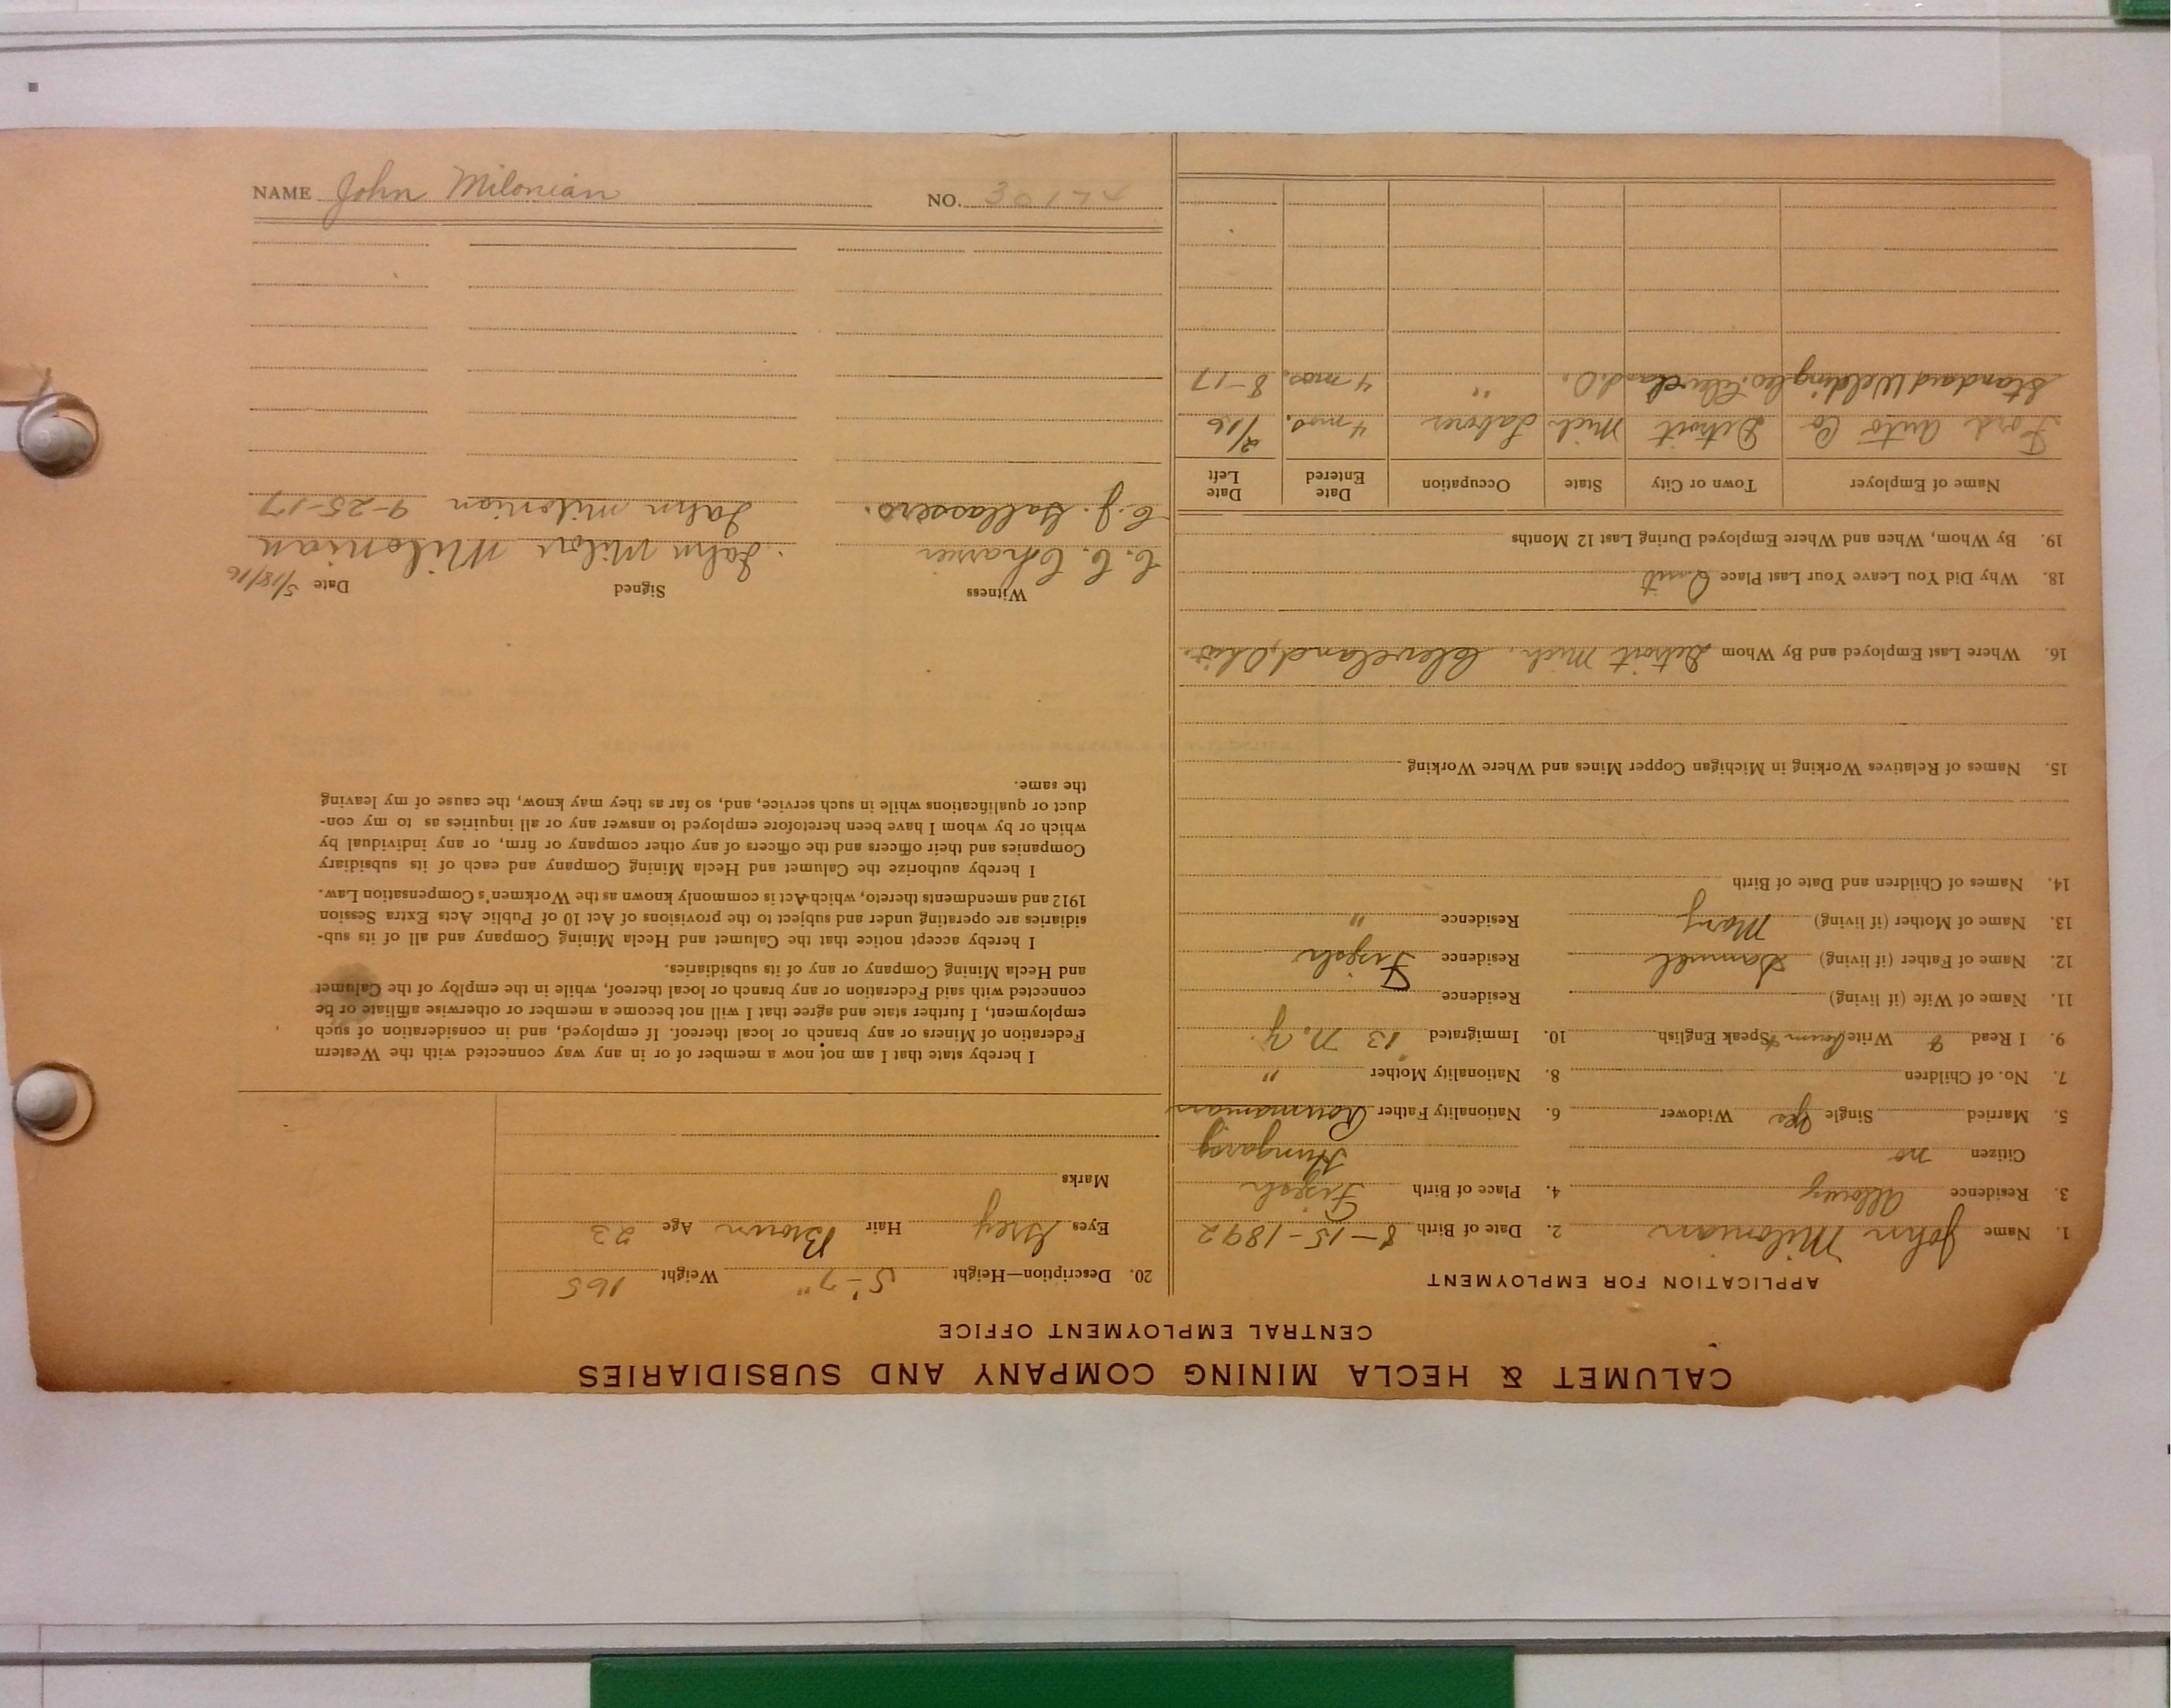 CALUMET & HECLA MINING COMPANY AND SUBSIDIARIES
CENTRAL EMPLOYMENT OFFICE
APPLICATION FOR EMPLOYMENT
1. Name John Milonian 2. Date of Birth 8-15-1892
3. Residence 4. Place of Birth
Citizen no Hungary
5. Married Single Yes Widower 6. Nationality Father Roumanian
7. No. of Children 8. Nationality Mother "
9. I Read & Write Roum & Speak English 10. Immigrated 13 N.Y.
11. Name of Wife (if living) Residence
12. Name of Father (if living) Daniel Residence
13. Name of Mother (if living) Mary Residence "
14. Names of Children and Date of Birth
15. Names of Relatives Working in Michigan Copper Mines and Where Working
16. Where Last Employed and By Whom Detroit Mich. Cleveland, Ohio.
18. Why Did You Leave Your Last Place Quit
19. By Whom, When and Where Employed During Last 12 Months
Name of Employer Town or City State Occupation Date Entered Date Left
Ford Auto Co Detroit Mich Laborer 4 mos. 2/16
Standard Welding Co. Cleveland. O. " 4 mos. 8-17
20. Description—Height 5'-7" Weight 165
Eyes Grey Hair Brown Age 23
Marks
I hereby state that I am not now a member of or in any way connected with the Western
Federation of Miners or any branch or local thereof. If employed, and in consideration of such
employment, I further state and agree that I will not become a member or otherwise affiliate or be
connected with said Federation or any branch or local thereof, while in the employ of the Calumet
and Hecla Mining Company or any of its subsidiaries.
I hereby accept notice that the Calumet and Hecla Mining Company and all of its sub-
sidiaries are operating under and subject to the provisions of Act 10 of Public Acts Extra Session
1912 and amendments thereto, which Act is commonly known as the Workmen's Compensation Law.
I hereby authorize the Calumet and Hecla Mining Company and each of its subsidiary
Companies and their officers and the officers of any other company or firm, or any individual by
which or by whom I have been heretofore employed to answer any or all inquiries as to my con-
duct or qualifications while in such service, and, so far as they may know, the cause of my leaving
the same.
Witness Signed Date 5/18/16
C. C. John Milon Milonian
C. J. John Milonian 9-25-17
NAME John Milonian NO. 30174